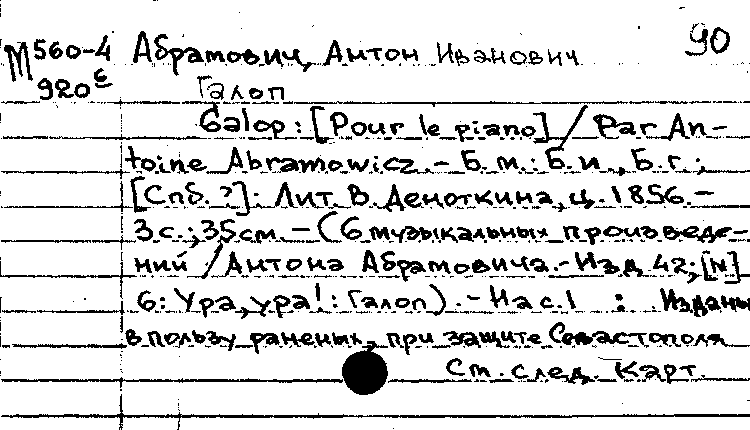 90
М 560-4 Абрамович, Антон Иванович
920 с Галоп
Galop : [Pour le piano] / Par An-
toine Abramowicz. - Б. м. : Б. и., Б. г. ;
[Спб. ?] : Лит. В. Деноткина, ц. 1856. -
3 с. ; 35 см. - (6 музыкальных произведе-
ний / Антона Абрамовича. - Изд. 42 ; [N]
6 : Ура, ура! : Галоп). - На с. 1 : Изданы
в пользу раненых, при защите Севастополя
См. след. карт.